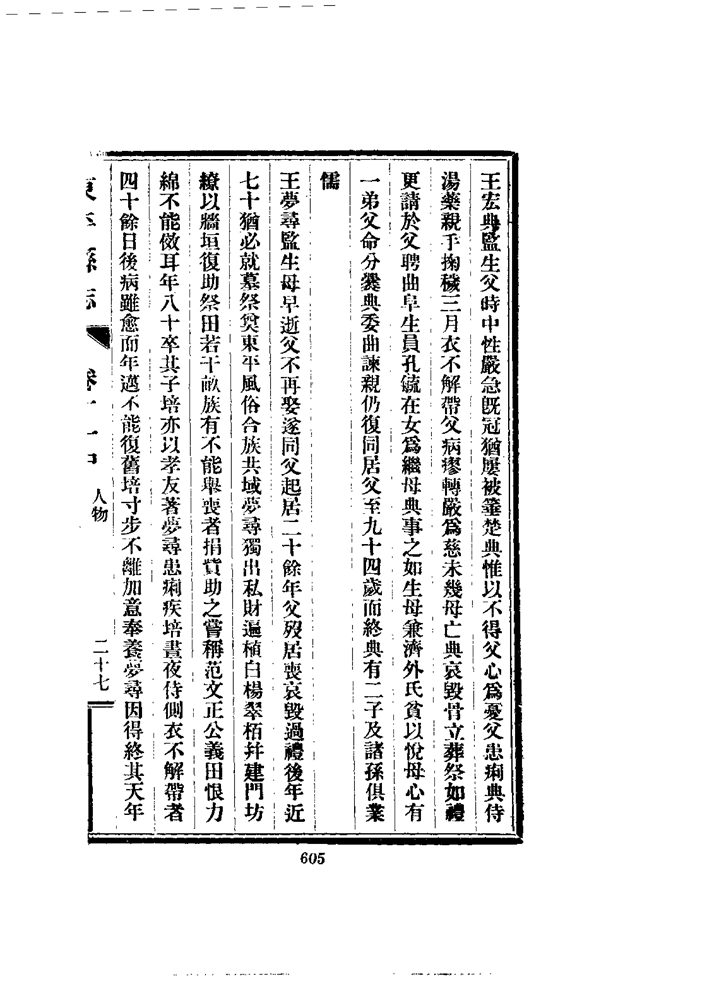 王宏典監生父時中性嚴急旣冠猶屢被箠楚典惟以不得父心爲憂父患痢典侍
湯藥親手掬穢三月衣不解帶父病瘳轉嚴爲慈未幾母亡典哀毀骨立葬祭如禮
更請於父聘曲阜生員孔毓在女爲繼母典事之如生母兼濟外氏貧以悅母心有
一弟父命分爨典委曲諫親仍復同居父至九十四歲而終典有二子及諸孫俱業
儒
王夢尋監生母早逝父不再娶遂同父起居二十餘年父歿居喪哀毀過禮後年近
七十猶必就墓祭奠東平風俗合族共域夢尋獨出私財遍植白楊翠栢幷建門坊
繚以牆垣復助祭田若干畝族有不能舉喪者捐貲助之嘗稱范文正公義田恨力
綿不能傚耳年八十卒其子培亦以孝友著夢尋患痢疾培晝夜侍側衣不解帶者
四十餘日後病雖愈而年邁不能復舊培寸步不離加意奉養夢尋因得終其天年
東平縣志
卷十一
人物
二十七
605